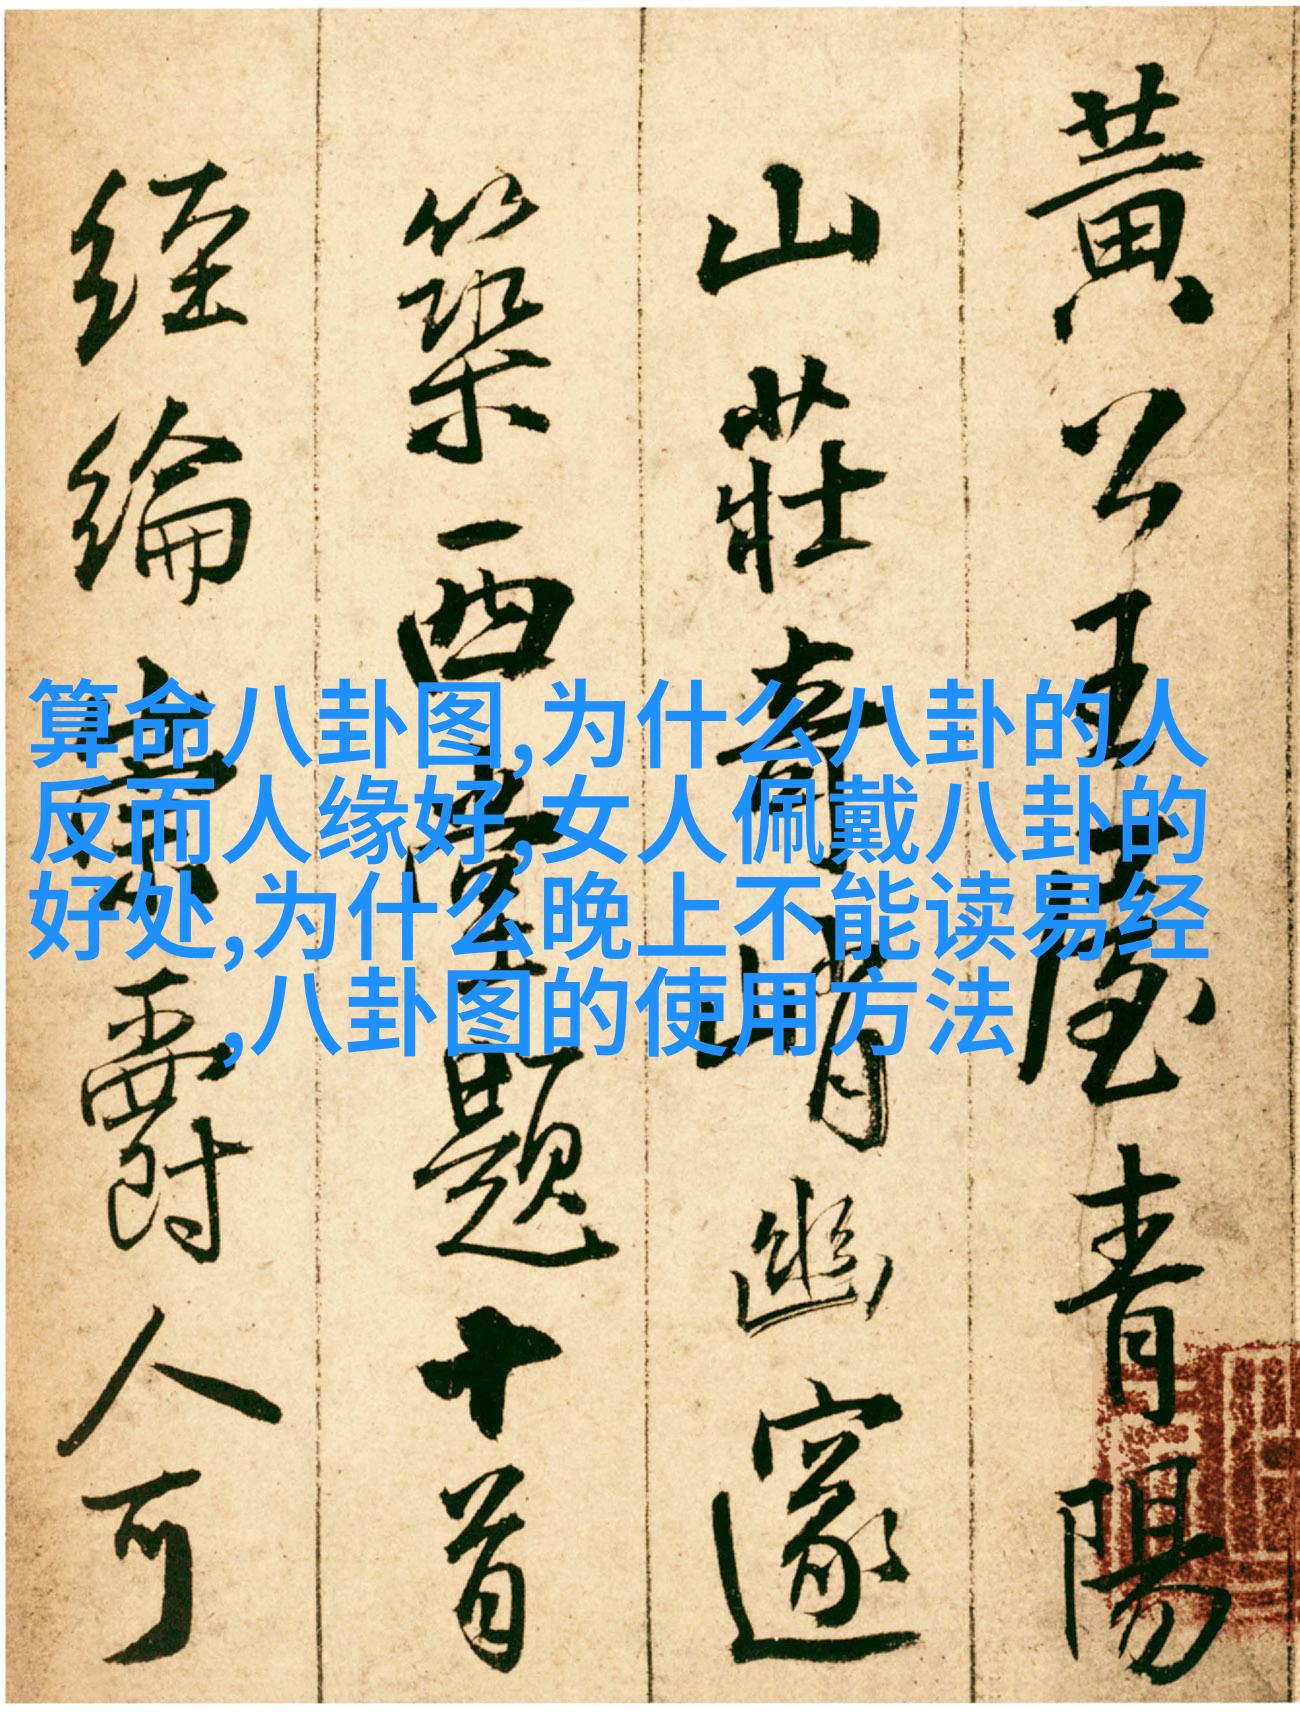 黃公王屋青陽
山莊奇峭幽邃
築西題十首
經綸爵人可
算命八卦图,为什么八卦的人
反而人缘好,女人佩戴八卦的
好处,为什么晚上不能读易经
,八卦图的使用方法